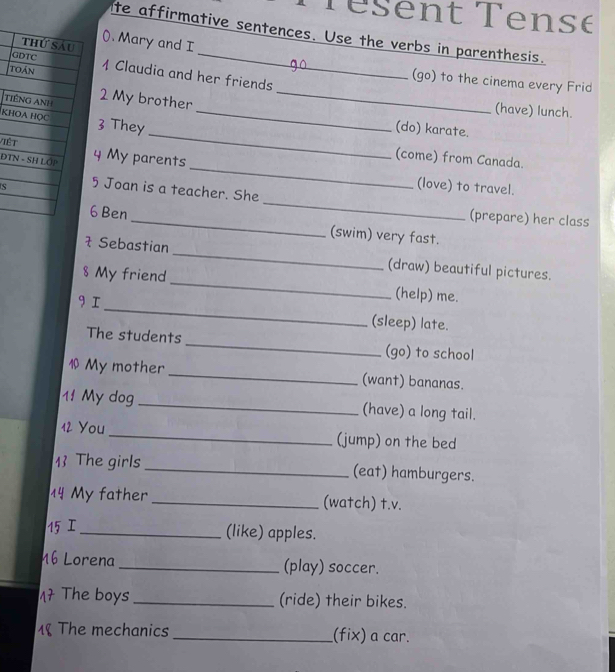 Present Tense
te affirmative sentences. Use the verbs in parenthesis.
0. Mary and I go (go) to the cinema every Frid
1 Claudia and her friends (have) lunch.
2 My brother (do) karate.
3 They (come) from Canada.
4 My parents (love) to travel.
5 Joan is a teacher. She (prepare) her class
6 Ben (swim) very fast.
7 Sebastian (draw) beautiful pictures.
8 My friend (help) me.
9 I (sleep) late.
The students (go) to school
10 My mother (want) bananas.
11 My dog (have) a long tail.
12 You (jump) on the bed
13 The girls (eat) hamburgers.
14 My father (watch) t.v.
15 I (like) apples.
16 Lorena (play) soccer.
17 The boys (ride) their bikes.
18 The mechanics (fix) a car.
THỨ SÁU
GDTC
TOÁN
TIẾNG ANH
KHOA HỌC
VIỆT
ĐTN - SH LỚP
S